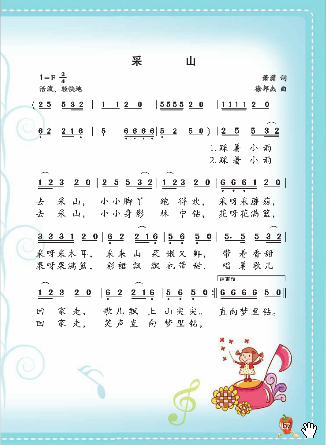 采 山
1=F 2/4
萧萧 词
活泼、轻快地
徐邦杰 曲
(2 5 5 3 2 | 1 1 2 0 | 5555 5 2 0 | 1111 2 0
6 2 2 1 6 | 5 6666 | 5 2 5 0) | 2 5 5 3 2
1.踩着小雨
2.踩着小雨
1 2 3 2 0 | 2 5 5 3 2 | 1 2 3 2 0 | 6 6 6 1 0
去采山, 小小脚丫 跑得欢, 采呀采蘑菇,
去采山, 小小身影 林中钻, 花呀花满篮,
3 3 3 1 0 | 6 2 2 1 6 | 5 6 5 0 | 5. 5 5 3 2
采呀采木耳, 又鲜, 带着香甜
果呀果满篮, 彩裙飘飘 唱着歌儿
1 2 3 2 0 | 6 2 2 1 6 | 5 6 5 0 :| 6 6 6 6 5 0
回家走, 歌儿飘上山尖尖。 直向梦里钻。
回家走, 笑声直向梦里钻,
67